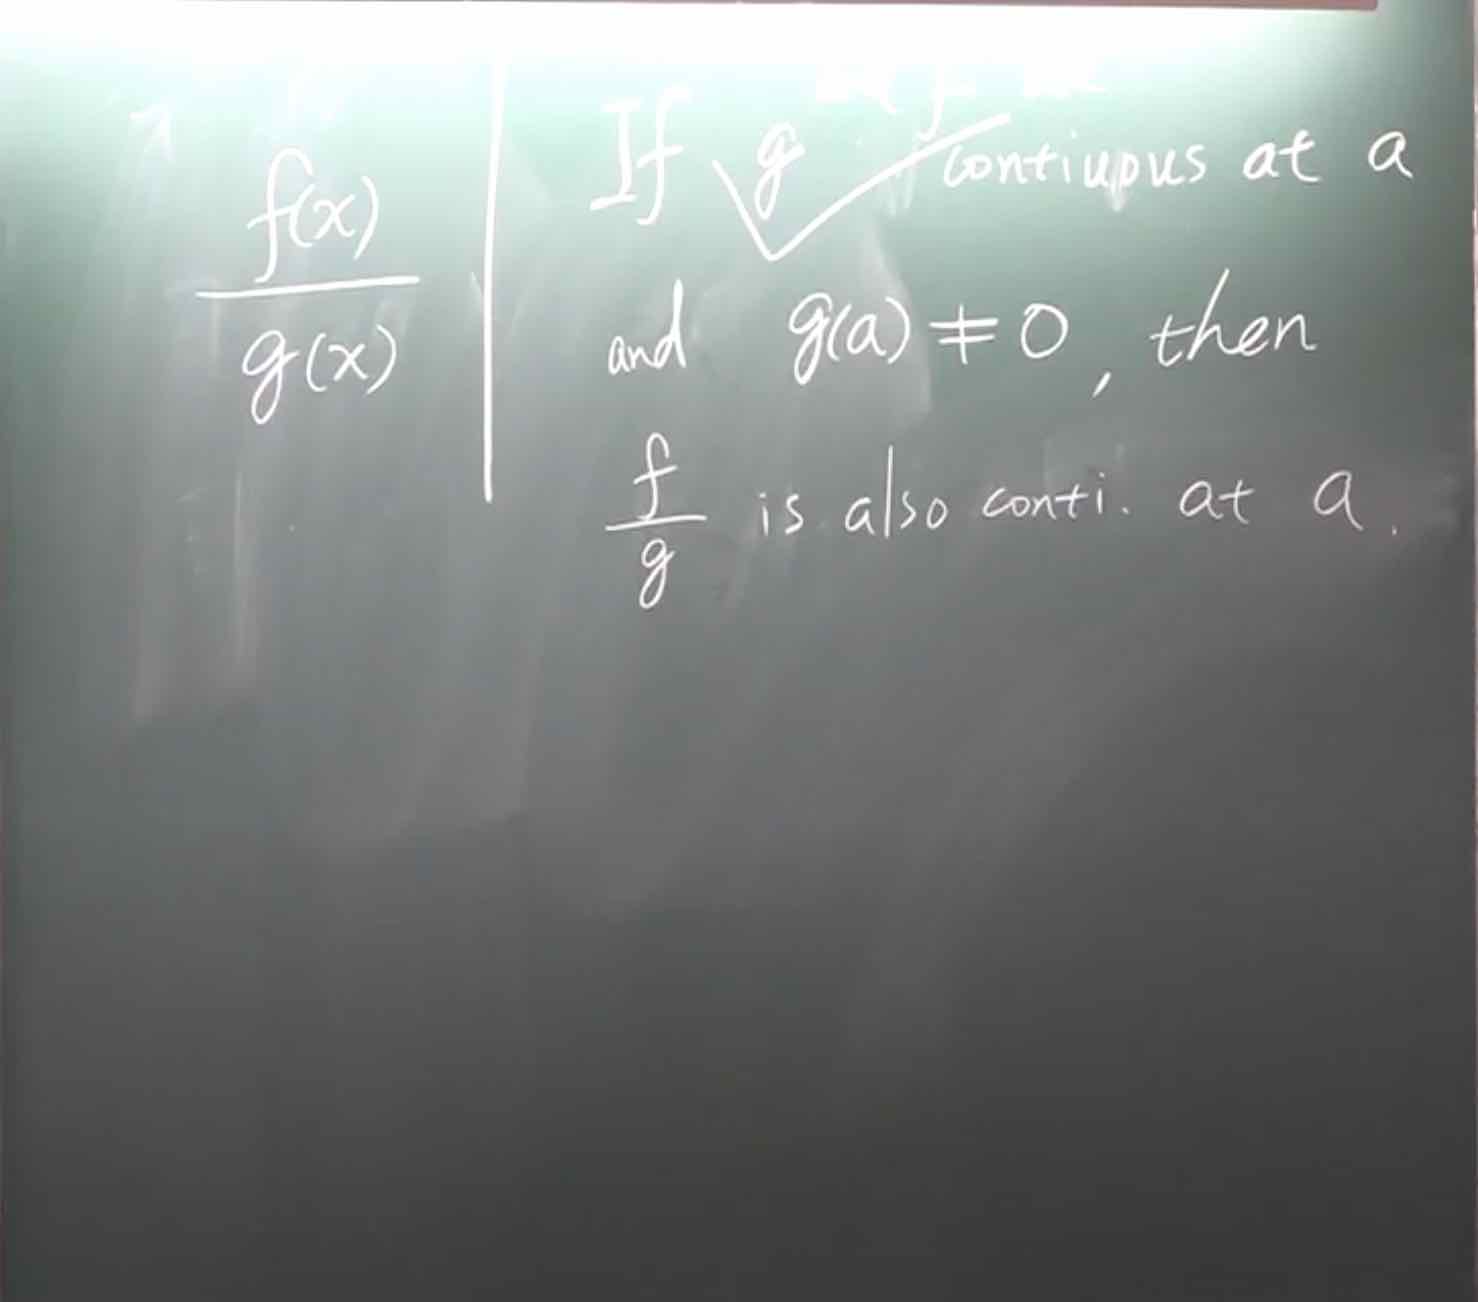 f(x)
g(x)
If g contiuous at a
and g(a) ≠ 0, then
f
g
is also conti. at a.